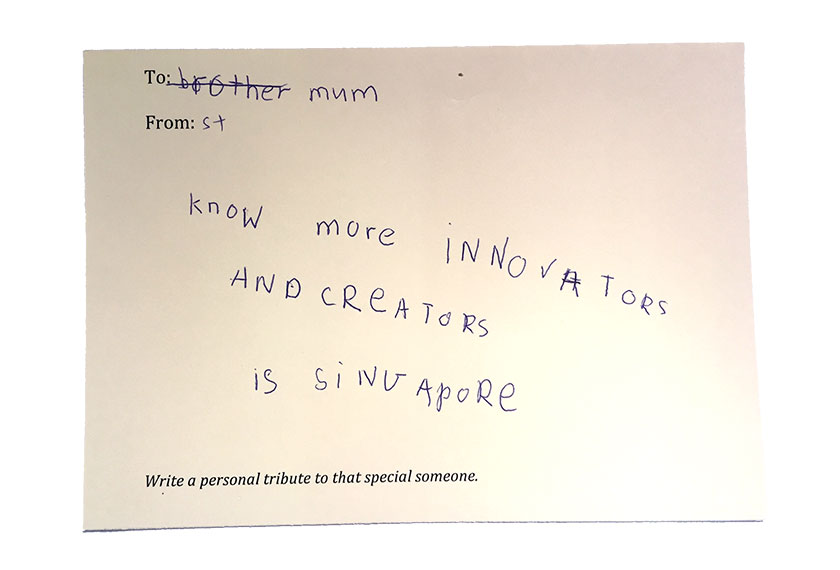 To: brother mum
From: st
know more iNNOVATORS
AND CREATORS
is SiNUAPORE
Write a personal tribute to that special someone.